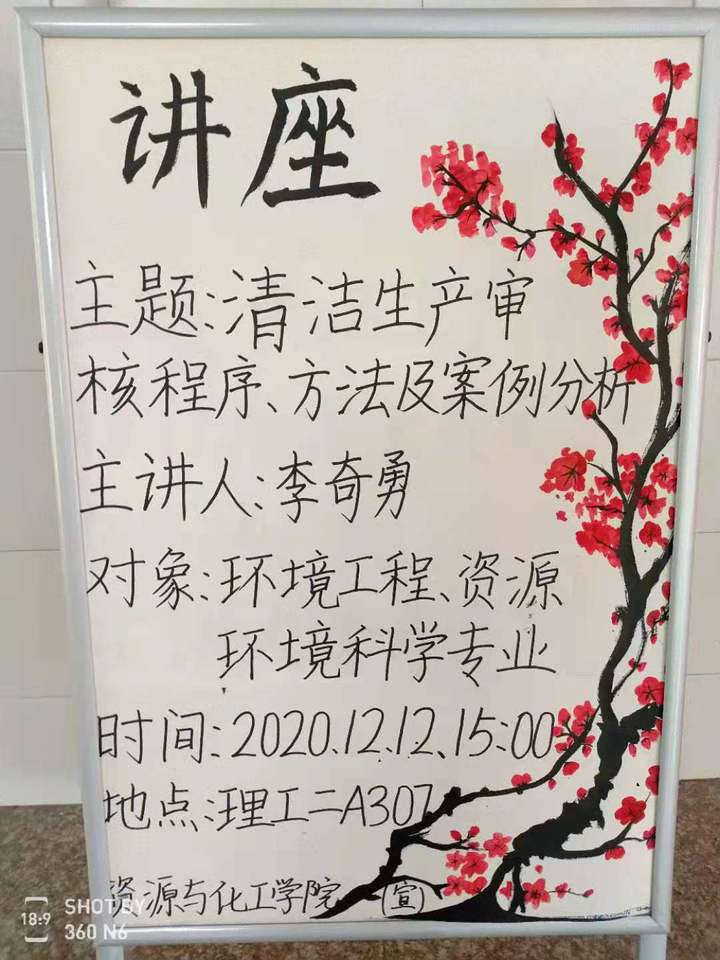 讲座
主题:清洁生产审
核程序、方法及案例分析
主讲人:李奇勇
对象:环境工程、资源
环境科学专业
时间:2020.12.12.15:00
地点:理工二A307
资源与化工学院 宣
18:9 SHOT BY
360 N6